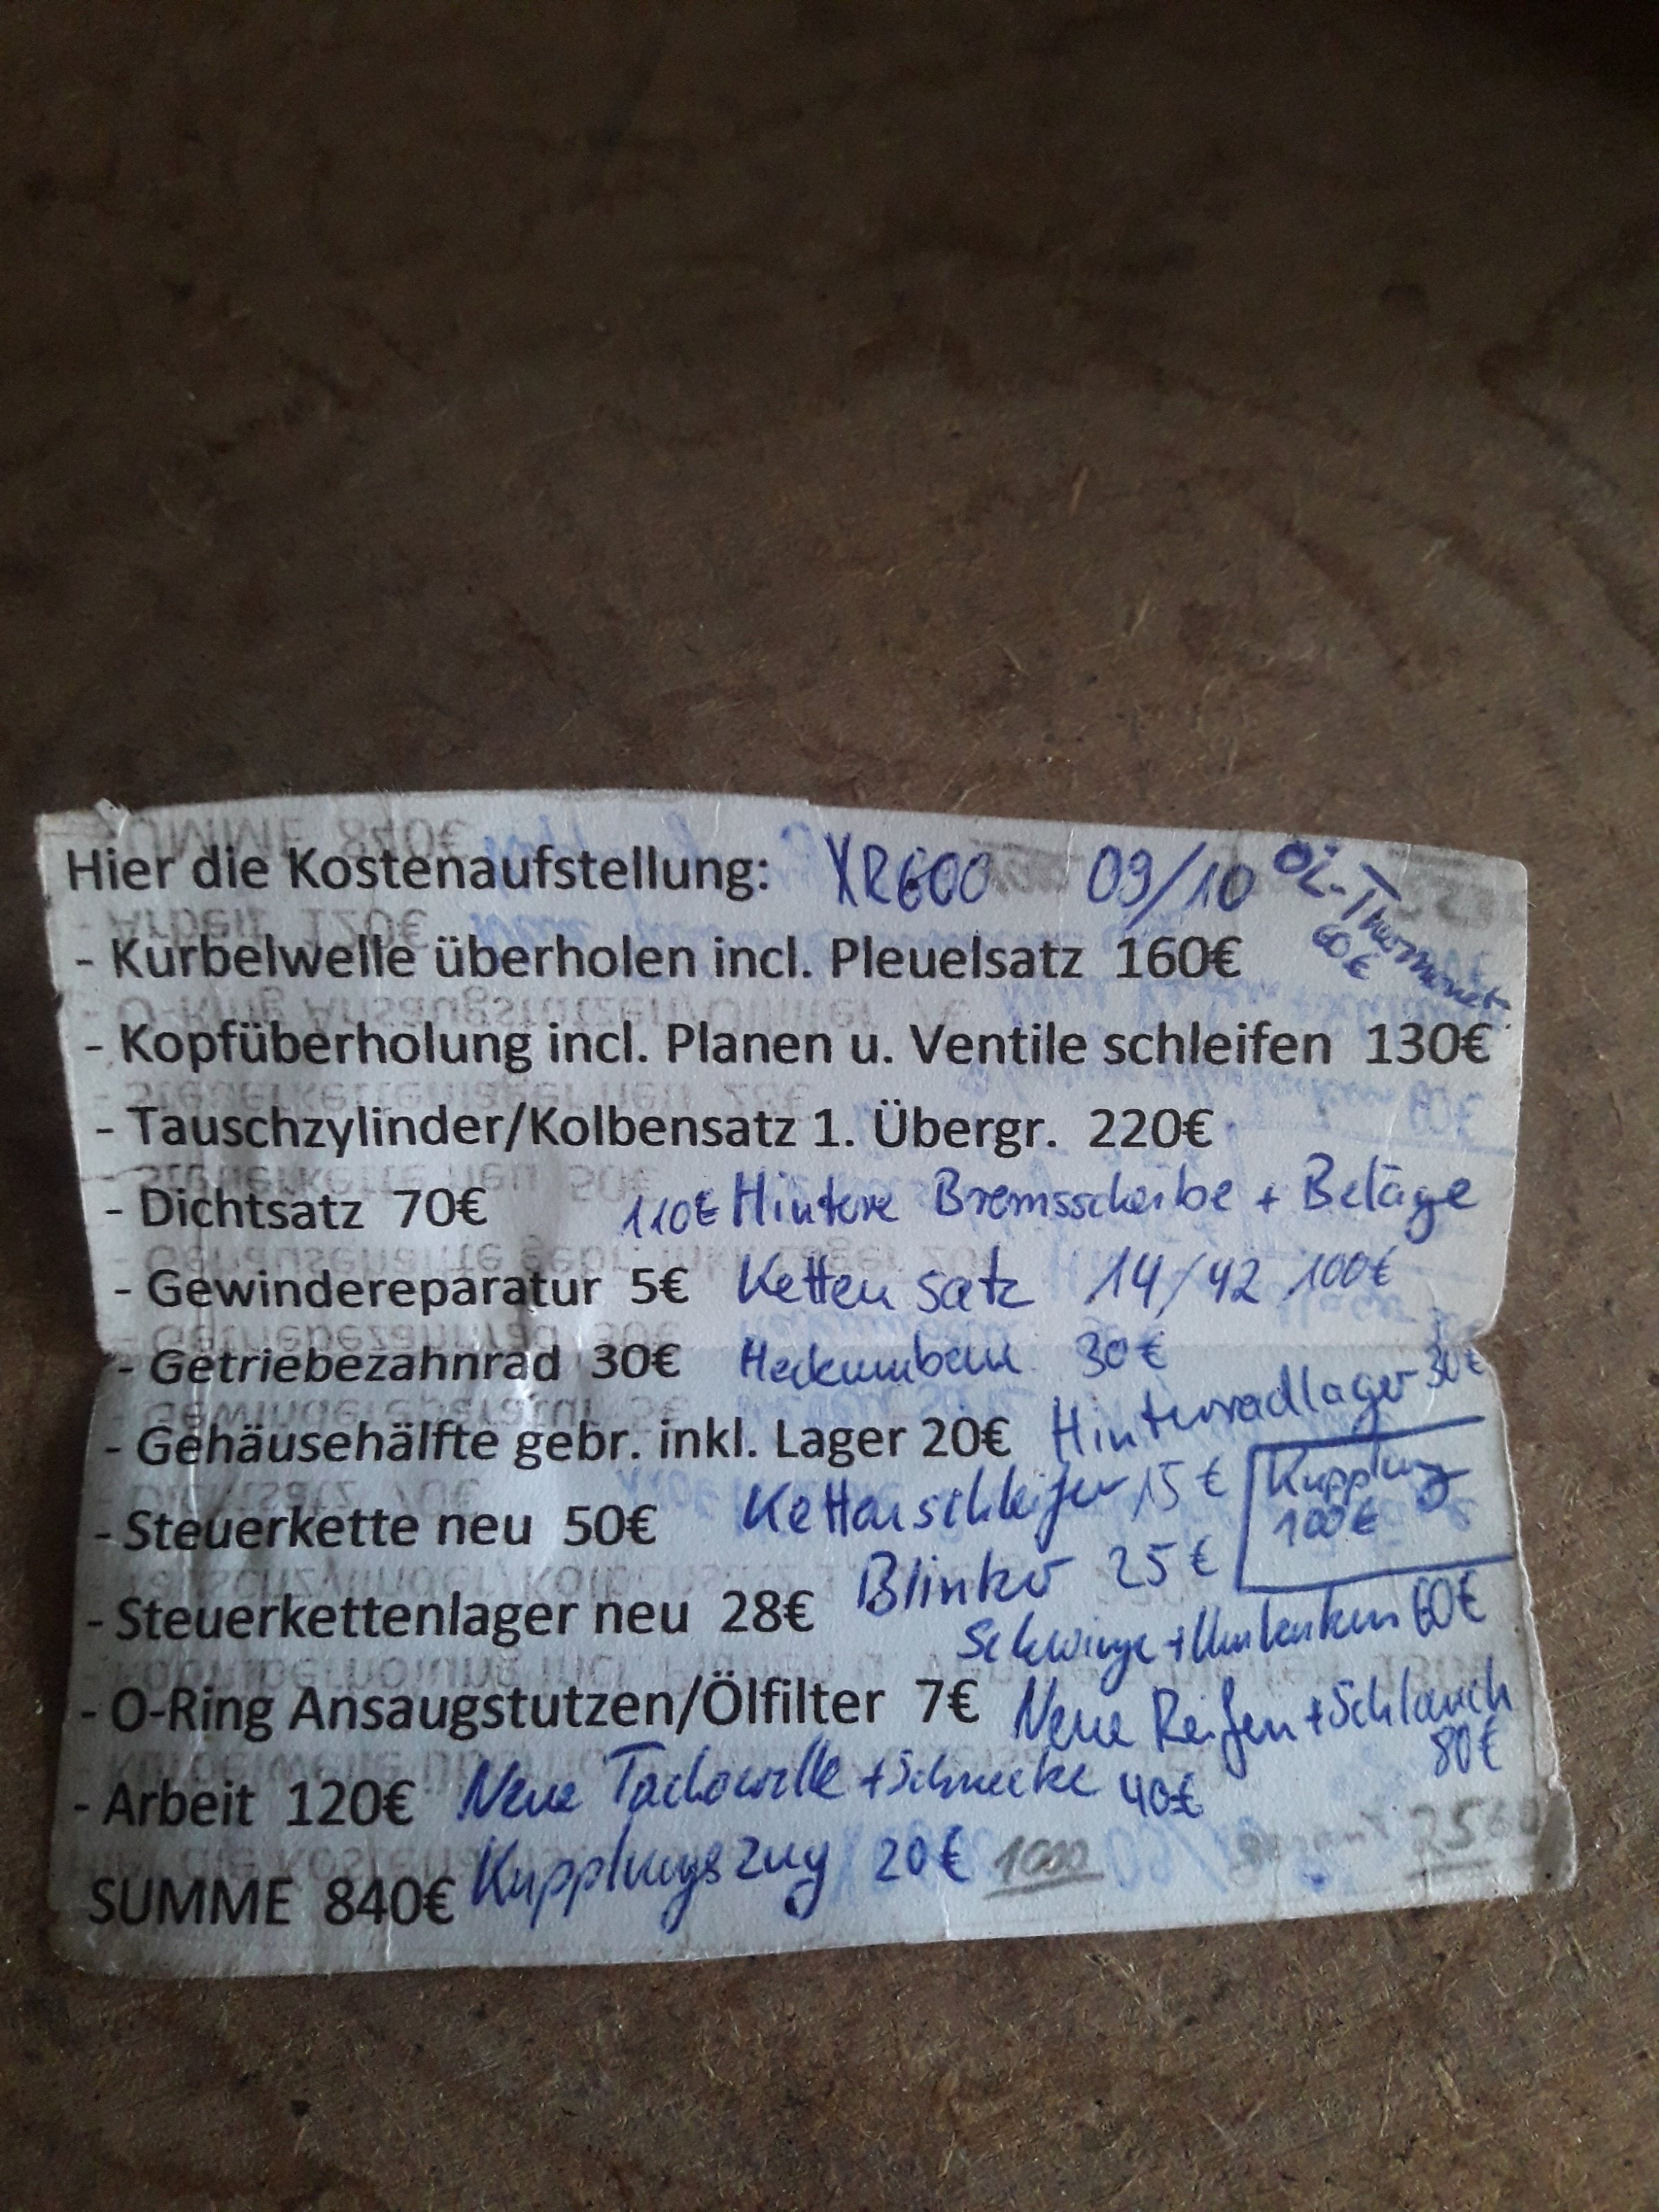 Hier die Kostenaufstellung: XR600 09/10 Öl-Thermomet.
60€
- Kurbelwelle überholen incl. Pleuelsatz 160€
- Kopfüberholung incl. Planen u. Ventile schleifen 130€
- Tauschzylinder/Kolbensatz 1. Übergr. 220€
- Dichtsatz 70€ 110€ Hintere Bremsscheibe + Beläge
- Gewindereparatur 5€ Kettensatz 14/42 100€
- Getriebezahnrad 30€ Heckumbau 30€
- Gehäusehälfte gebr. inkl. Lager 20€ Hinterradlager 30€
- Steuerkette neu 50€ Kettenschleifer 15€ Kupplung
100€
- Steuerkettenlager neu 28€ Blinker 25€
Schwinge + Umlenkung 60€
- O-Ring Ansaugstutzen/Ölfilter 7€ Neue Reifen + Schlauch
80€
- Arbeit 120€ Neue Tachowelle + Schnecke 40€
SUMME 840€ Kupplungszug 20€ 1000